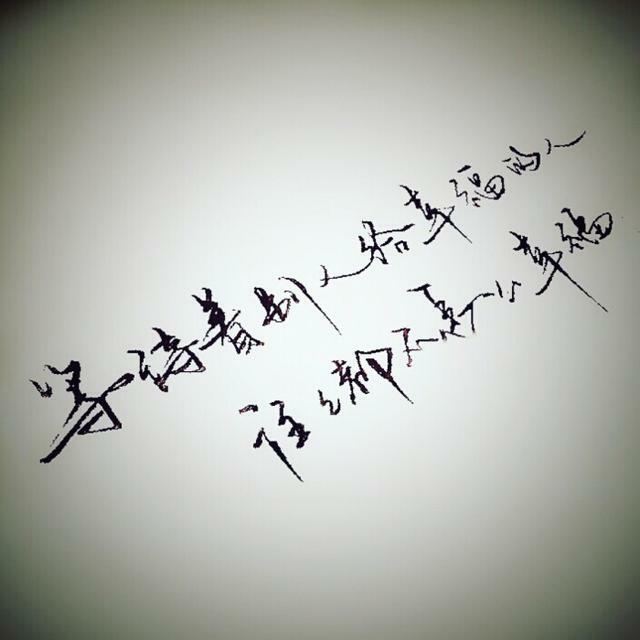 等待着别人给幸福的人
往往都不是个幸福